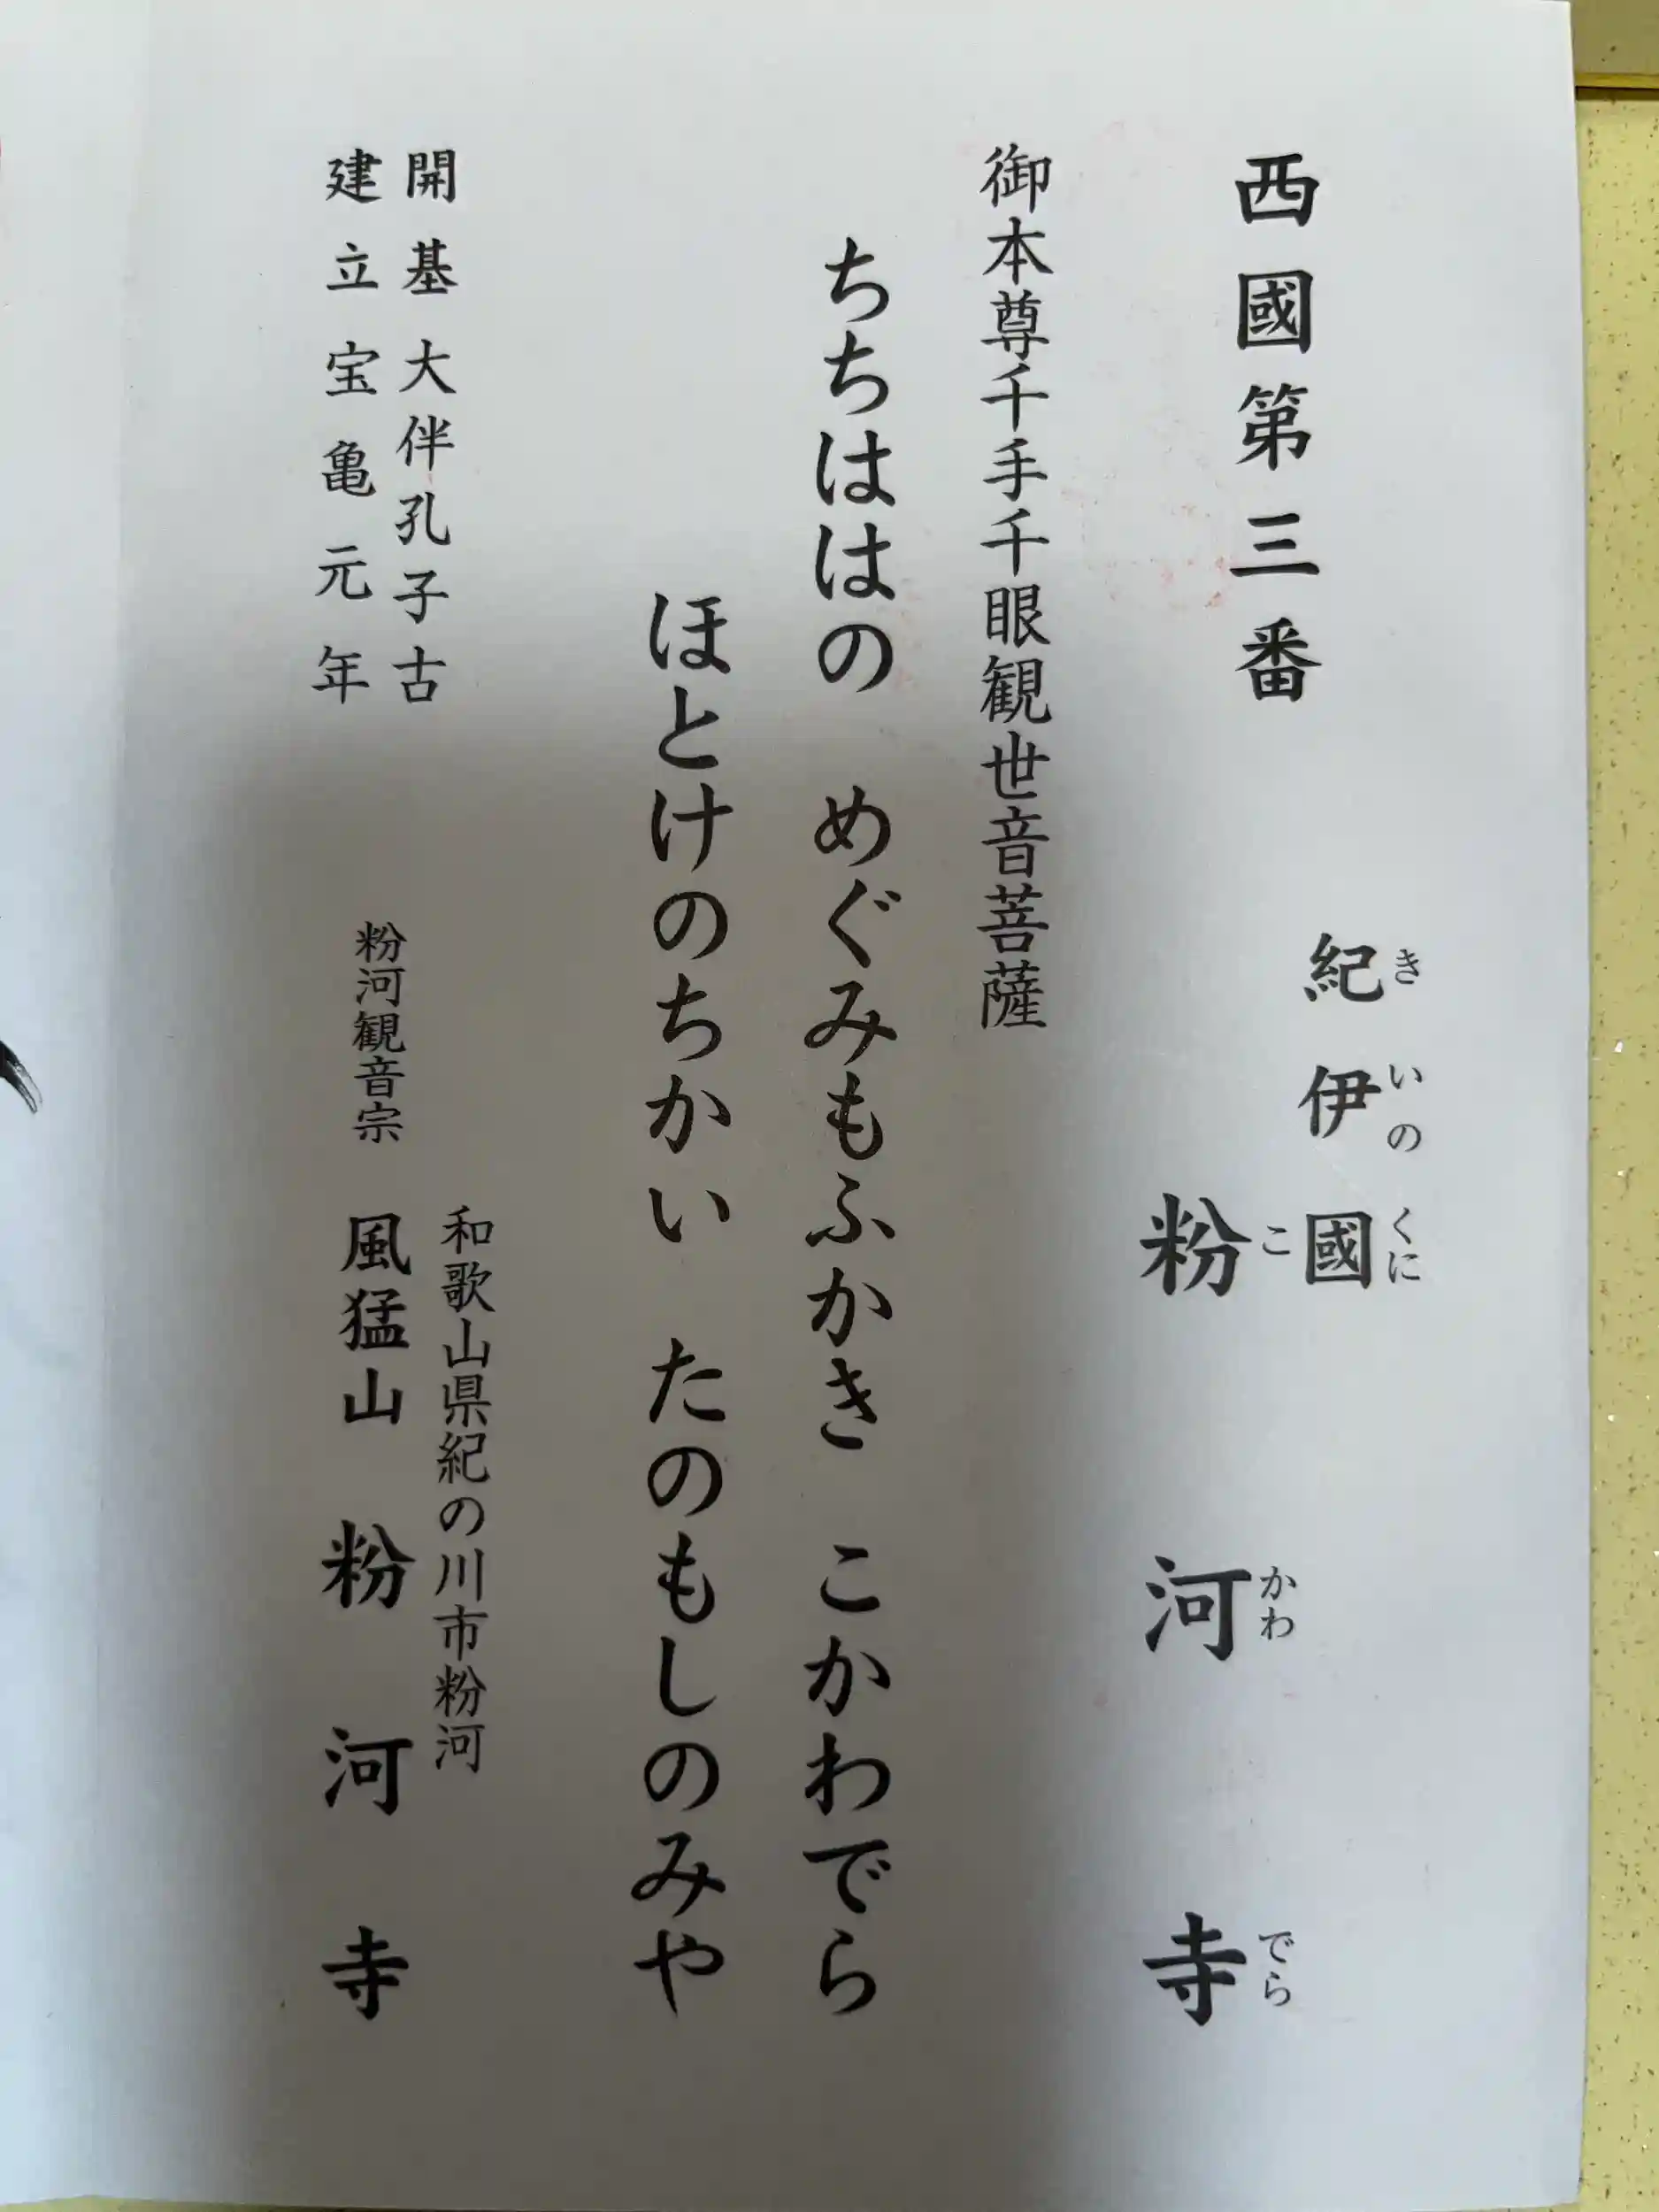 西國第三番
紀伊國
きいのくに
粉河寺
こかわでら
御本尊千手千眼観世音菩薩
ちちははの　めぐみもふかき　こかわでら
ほとけのちかい　たのもしのみや
開基　大伴孔子古
建立　宝亀元年
和歌山県紀の川市粉河
粉河観音宗　風猛山　粉河寺